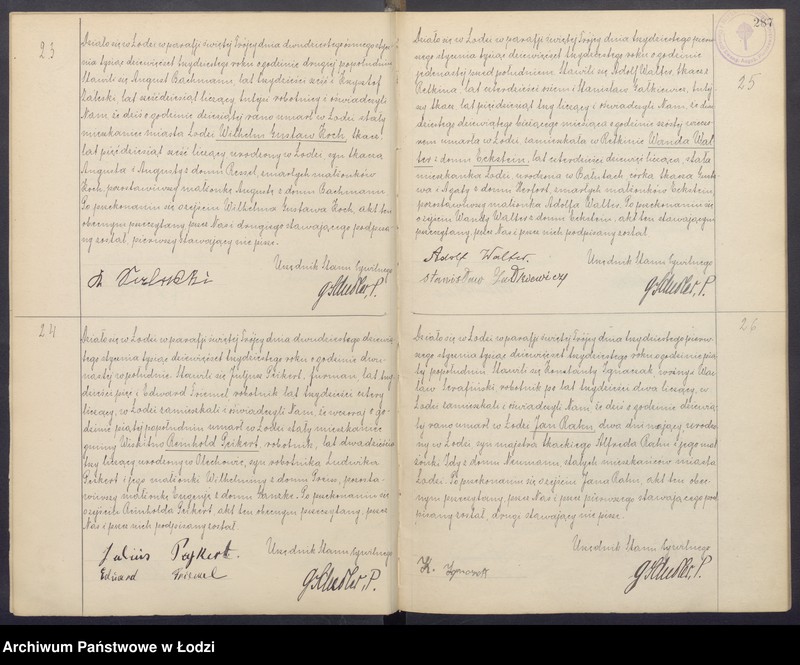 23
Działo się w Łodzi w parafji świętej Trójcy dnia dwudziestego ósmego stycz-
nia tysiąc dziewięćset trzydziestego roku o godzinie drugiej popołudniu
Stawili się August Bachmann, lat trzydzieści sześć i Krzysztof
Zaleski, lat sześćdziesiąt liczący, tutejsi robotnicy i oświadczyli
Nam, że dziś o godzinie dziesiątej rano umarł w Łodzi stały
mieszkaniec miasta Łodzi Wilhelm Gustaw Koch, tkacz,
lat pięćdziesiąt sześć liczący urodzony w Łodzi, syn tkacza
Augusta i Augusty z domu Ressel, zmarłych małżonków
Koch, pozostawiwszy małżonkę Augustę z domu Bachmann
Po przekonaniu się o zejściu Wilhelma Gustawa Koch, akt ten
obecnym przeczytany, przez Nas i drugiego stawającego podpisa-
ny został, pierwszy stawający nie pisze.
Urzędnik Stanu Cywilnego
24
Działo się w Łodzi w parafji świętej Trójcy dnia dwudziestego dziewią-
tego stycznia tysiąc dziewięćset trzydziestego roku o godzinie dwu-
nastej w południe. Stawili się Juljusz Peikert, furman, lat trzy-
dzieści pięć i Edward Friemel robotnik lat trzydzieści cztery
liczący, w Łodzi zamieszkali i oświadczyli Nam, że wczoraj o go-
dzinie piątej popołudniu umarł w Łodzi stały mieszkaniec
gminy Wiskitno Reinhold Peikert, robotnik, lat dwadzieścia
trzy liczący urodzony w Olechowie, syn robotnika Ludwika
Peikert i jego małżonki Wilhelminy z domu, pozosta-
wiwszy małżonkę Eugenję z domu. Po przekonaniu się
o zejściu Reinholda Peikert, akt ten obecnym przeczytany, przez
Nas i przez nich podpisany został
Julius
Eduard Friemel
Urzędnik Stanu Cywilnego
287
25
Działo się w Łodzi w parafji świętej Trójcy dnia trzydziestego pierw-
szego stycznia tysiąc dziewięćset trzydziestego roku o godzinie
jedenastej przed południem. Stawili się Adolf Walter, tkacz z
Retkinia, lat czterdzieści osiem i Stanisław, tutej-
szy tkacz, lat pięćdziesiąt trzy liczący i oświadczyli Nam, że dwu-
dziestego dziewiątego bieżącego miesiąca o godzinie szóstej wieczo-
rem umarła w Łodzi, zamieszkała w Retkinie Wanda Wal-
ter z domu Eckstein, lat czterdzieści dziewięć licząca, stała
mieszkanka Łodzi, urodzona w Bałutach, córka tkacza Gusta-
wa i Agaty z domu Herfort, zmarłych małżonków Eckstein,
pozostawiwszy małżonka Adolfa Walter. Po przekonaniu się
o zejściu Wandy Walter z domu Eckstein, akt ten stawającym
przeczytany, przez Nas i przez nich podpisany został
Adolf Walter.
Urzędnik Stanu Cywilnego
26
Działo się w Łodzi w parafji świętej Trójcy dnia trzydziestego pierw-
szego stycznia tysiąc dziewięćset trzydziestego roku o godzinie pią-
tej popołudniu. Stawili się Konstanty Ignaczak, woźny i Wac-
ław Serafiński, robotnik po lat trzydzieści dwa liczący, w
Łodzi zamieszkali i oświadczyli Nam, że dziś o godzinie dziewią-
tej rano umarł w Łodzi Jan Rahn, dwa dni mający, urodzo-
ny w Łodzi, syn majstra tkackiego Alfreda Rahn i jego mał-
żonki Idy z domu Neumann, stałych mieszkańców miasta
Łodzi. Po przekonaniu się o zejściu Jana Rahn, akt ten obec-
nym przeczytany, przez Nas i przez pierwszego stawającego pod-
pisany został, drugi stawający nie pisze.
Urzędnik Stanu Cywilnego
K. Ignaczak
Archiwum Państwowe w Łodzi